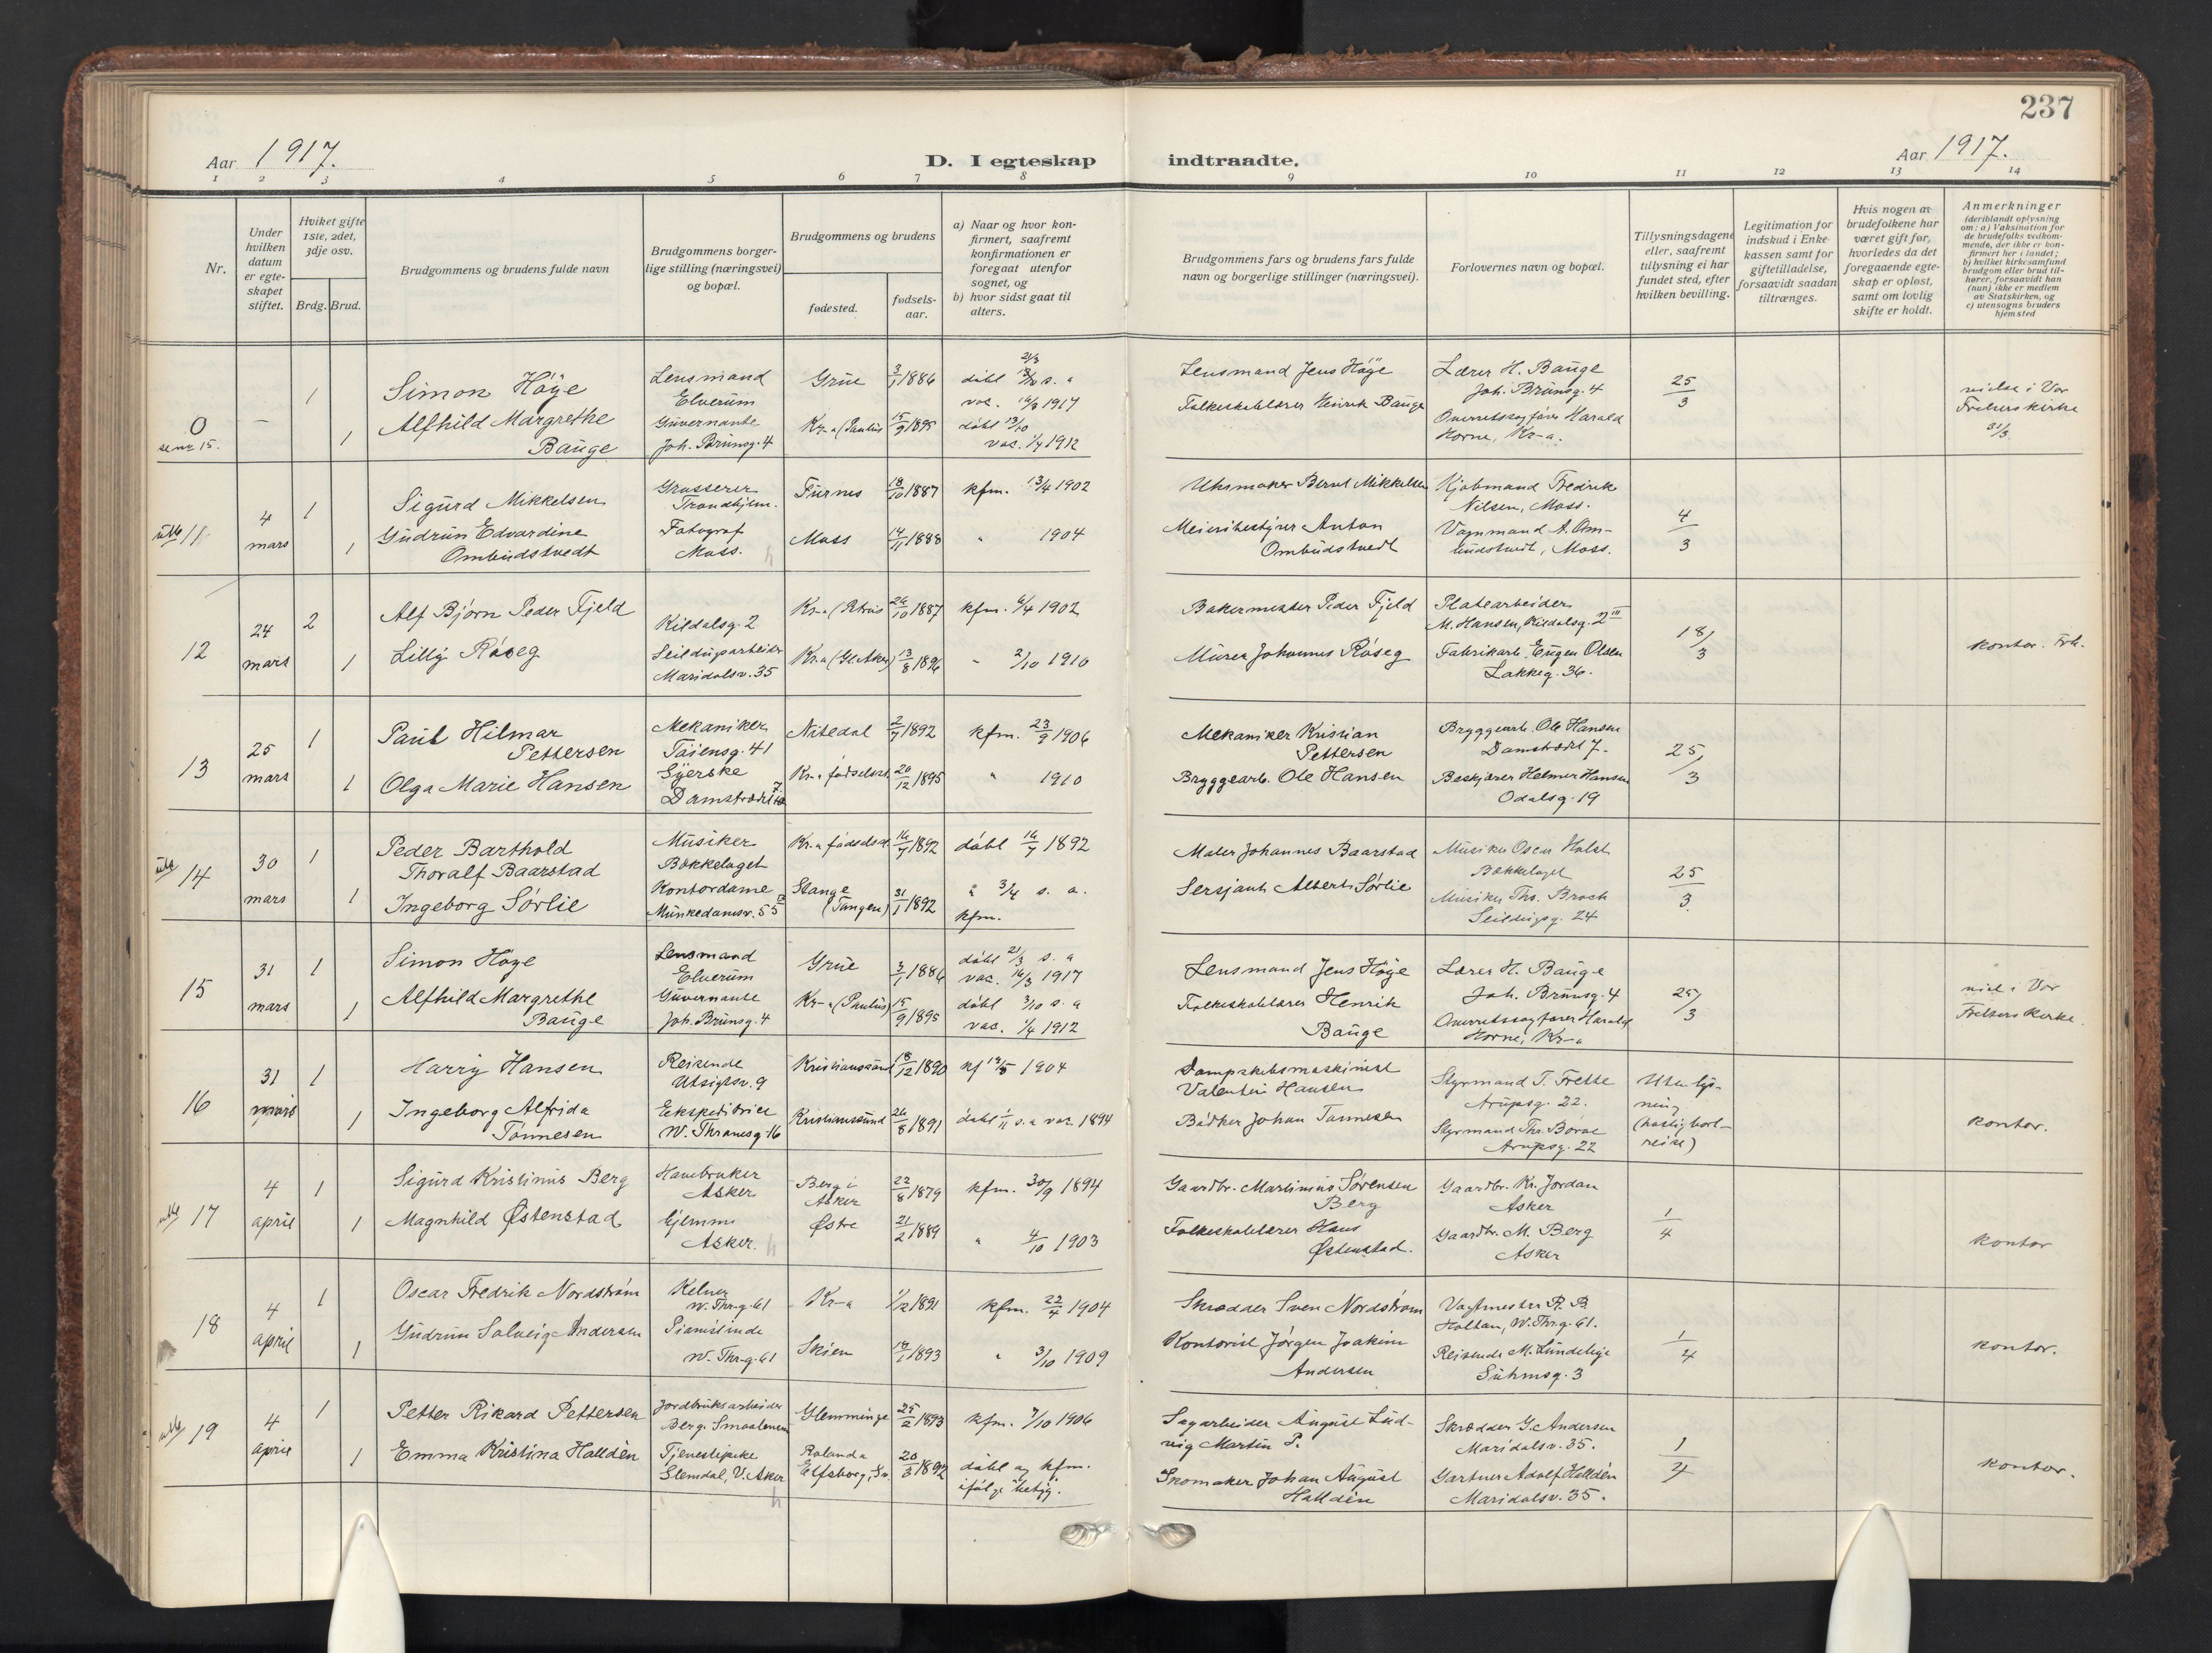 237
Aar 1917.
D. I egteskap indtraadte.
Aar 1917.
1 2 3 4 5 6 7 8 9 10 11 12 13 14
Nr.
Under hvilken datum er egteskapet stiftet.
Hviket gifte 1ste, 2det, 3dje osv.
Brdg. Brud.
Brudgommens og brudens fulde navn
Brudgommens borgerlige stilling (næringsvei) og bopæl.
Brudgommens og brudens
fødested.
fødselsaar.
a) Naar og hvor konfirmert, saafremt konfirmationen er foregaat utenfor sognet, og
b) hvor sidst gaat til alters.
Brudgommens fars og brudens fars fulde navn og borgerlige stillinger (næringsvei).
Forlovernes navn og bopæl.
Tillysningsdagene eller, saafremt tillysning ei har fundet sted, efter hvilken bevilling.
Legitimation for indskud i Enkekassen samt for giftetilladelse, forsaavidt saadan tiltrænges.
Hvis nogen at brudefolkene har været gift før, hvorledes da det foregaaende egteskap er opløst, samt om lovlig skifte er holdt.
Anmerkninger
(deriblandt oplysning om: a) Vaksination for de brudefolks vedkommende, der ikke er konfirmert her i landet; b) hvilket kirkesamfund brudgom eller brud tilhører, forsaavidt han (hun) ikke er medlem av Statskirken, og c) utensogns bruders hjemsted
0 se nr 15. –
1 Simon Höye
Lensmand Elverum
Grue 3/1 1886
døbt 21/3 s. a
vac. 16/3 1917
Lensmand Jens Høÿe
Lærer H. Bauge
Joh. Brunsg. 4
25/3
vielse i Vor Frelsers kirke 31/3
1 Alfhild Margrethe Bauge
Guvernante
Joh. Brunsg. 4
Kr-a (Paulus 15/9 1895
døbt 13/10
vac. 1/4 1912
Folkeskolelærer Henrik Bauge
Overretssagfører Harald Horne, Kr-a.
11
4 mars
1 Sigurd Mikkelsen
Grosserer
Trondhjem.
Furnes 18/10 1887
kfm. 13/4 1902
Uhrmaker Bernt Mikkelsen
Kjøbmand Fredrik Nilsen, Moss.
4/3
1 Gudrun Edvardine Ombudstvedt
Fotograf
Moss.
Moss 14/11 1888
" 1904
Meieribestyrer Anton Ombudstvedt
Vognmand A. Ombudstvedt, Moss.
12
24 mars
2 Alf Bjørn Peder Fjeld
Kildalsg. 2
Kr-a (Petrus 26/10 1887
kfm. 6/4 1902
Bakermester Peder Fjeld
Platearbeider
M. Hansen, Kildalsg. 2 III
18/3
kontor.
1 Lilly Røseg
Seildugarbeider
Maridalsv. 35
Kr.a (Gl. Aker) 13/8 1896
" 2/10 1910
Murer Johannes Røseg
Fabrikarb. Eugen Olsen
Lakkeg. 36.
13
25 mars
1 Paul Hilmar Pettersen
Mekaniker
Tøiensg. 41
Nitedal 2/7 1892
kfm. 23/9 1906
Mekaniker Kristian Pettersen
Bryggearb. Ole Hansen
Damstrædet 7.
25/3
1 Olga Marie Hansen
Syerske
Damstrædet
Kr-a fødselsst. 20/12 1895
" 1910
Bryggearb. Ole Hansen
Beskjærer Helmer Hansen
Odalsg. 19
14
30 mars
1 Peder Barthold Thoralf Baarstad
Musiker
Bækkelaget
Kr.a fødselsst. 16/7 1892
døbt 16/7 1892
Maler Johannes Baarstad
Musiker Oscar Holst
Bækkelaget
25/3
1 Ingeborg Sørlie
Kontordame
Munkedamsv. 55
Stange (Tangen) 31/1 1892
" 3/4 s. a.
kfm.
Sersjant Albert Sørlie
Musiker Ths. Broch
Seildugsg. 24
15
31 mars
1 Simon Höye
Lensmand
Elverum
Grue 3/1 1886
døbt 21/3 s. a
vac. 16/3 1917
Lensmand Jens Høye
Lærer H. Bauge
Joh. Brunsg. 4
25/3
viet i Vor Frelsers kirke.
1 Alfhild Margrethe Bauge
Guvernante
Joh. Brunsg. 4
Kr-a (Paulus) 15/9 1895
døbt 3/10 s. a
vac. 1/4 1912
Folkeskolelærer Henrik Bauge
Overretssagfører Harald Horne, Kr-a
16
31 mars
1 Harry Hansen
Reisende
Utsigtsv. 9
Kristianssand 18/12 1890
kf 14/5 1904
Dampskibsmaskinist
Valentin Hansen
Styrmand T. Frette
Arupsg. 22.
Uten lysning (hastig bortreise)
kontor.
1 Ingeborg Alfrida Tønnesen
Ekspeditrice
W. Thranesg. 16
Kristianssund 26/8 1891
døbt 1/11 s. a vac. 1894
Bødker Johan Tønnesen
Styrmand Thr. Børøe
Arupsg. 22
17
4 april
1 Sigurd Kristinus Berg
Havebruker
Asker
Berg i Asker 22/8 1879
kfm. 30/9 1894
Gaardbr. Martinius Sørensen Berg
Gaardbr. Kr. Jordan
Asker
1/4
kontor
1 Magnhild Østenstad
Hjemme
Asker.
Østre 21/2 1889
" 4/10 1903
Folkeskolelærer Hans Østenstad.
Gaardbr. M. Berg
Asker
18
4 april
1 Oscar Fredrik Nordstrøm
Kelner
W. Thr-g. 61
Kr-a 1/12 1891
kfm. 22/4 1904
Skrædder Sven Nordstrøm
Vagtmester R. B. Holtan, W. Thr.g. 61.
1/4
kontor.
1 Gudrun Solveig Andersen
Pianistinde
W. Thr-g. 61
Skien 18/1 1893
" 3/10 1909
Kontorist Jørgen Joakim Andersen
Reisende M. Lundeby
Suhmsg. 3
19
4 april
1 Petter Rikard Pettersen
Jordbruksarbeider
Berg. Smaalenene
Glemminge 25/2 1893
kfm. 7/10 1906
Sagarbeider August Ludvig Martin P.
Skrædder G. Andersen
Maridalsv. 35.
1/4
kontor.
1 Emma Kristina Halldèn
Tjenestepike
Slemdal, V. Aker
Rolanda
Elfsborg, Sv. 20/3 1892
døbt og kfm.
ifølge betyg.
Skomaker Johan August Halldèn
Gartner Adolf Halldèn
Maridalsv. 35.